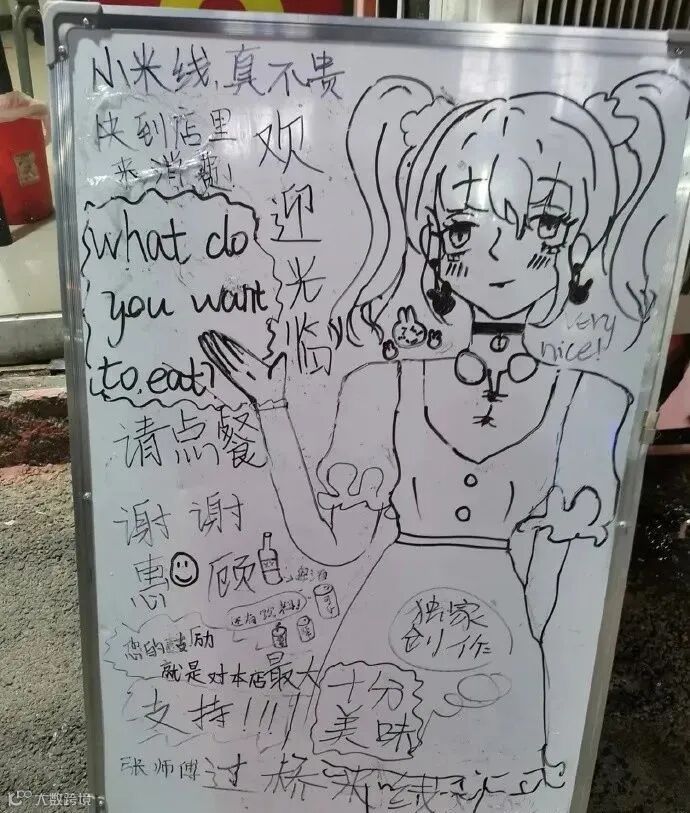 小米线,真不贵
快到店里
来消费!
欢迎光临
what do
you want
to eat?
very
nice!
请点餐
谢谢
惠顾
还有饮料!
您的鼓励
就是对本店最大
支持!!!
独家
创作
十分
美味
张师傅过桥米线
大数跨境